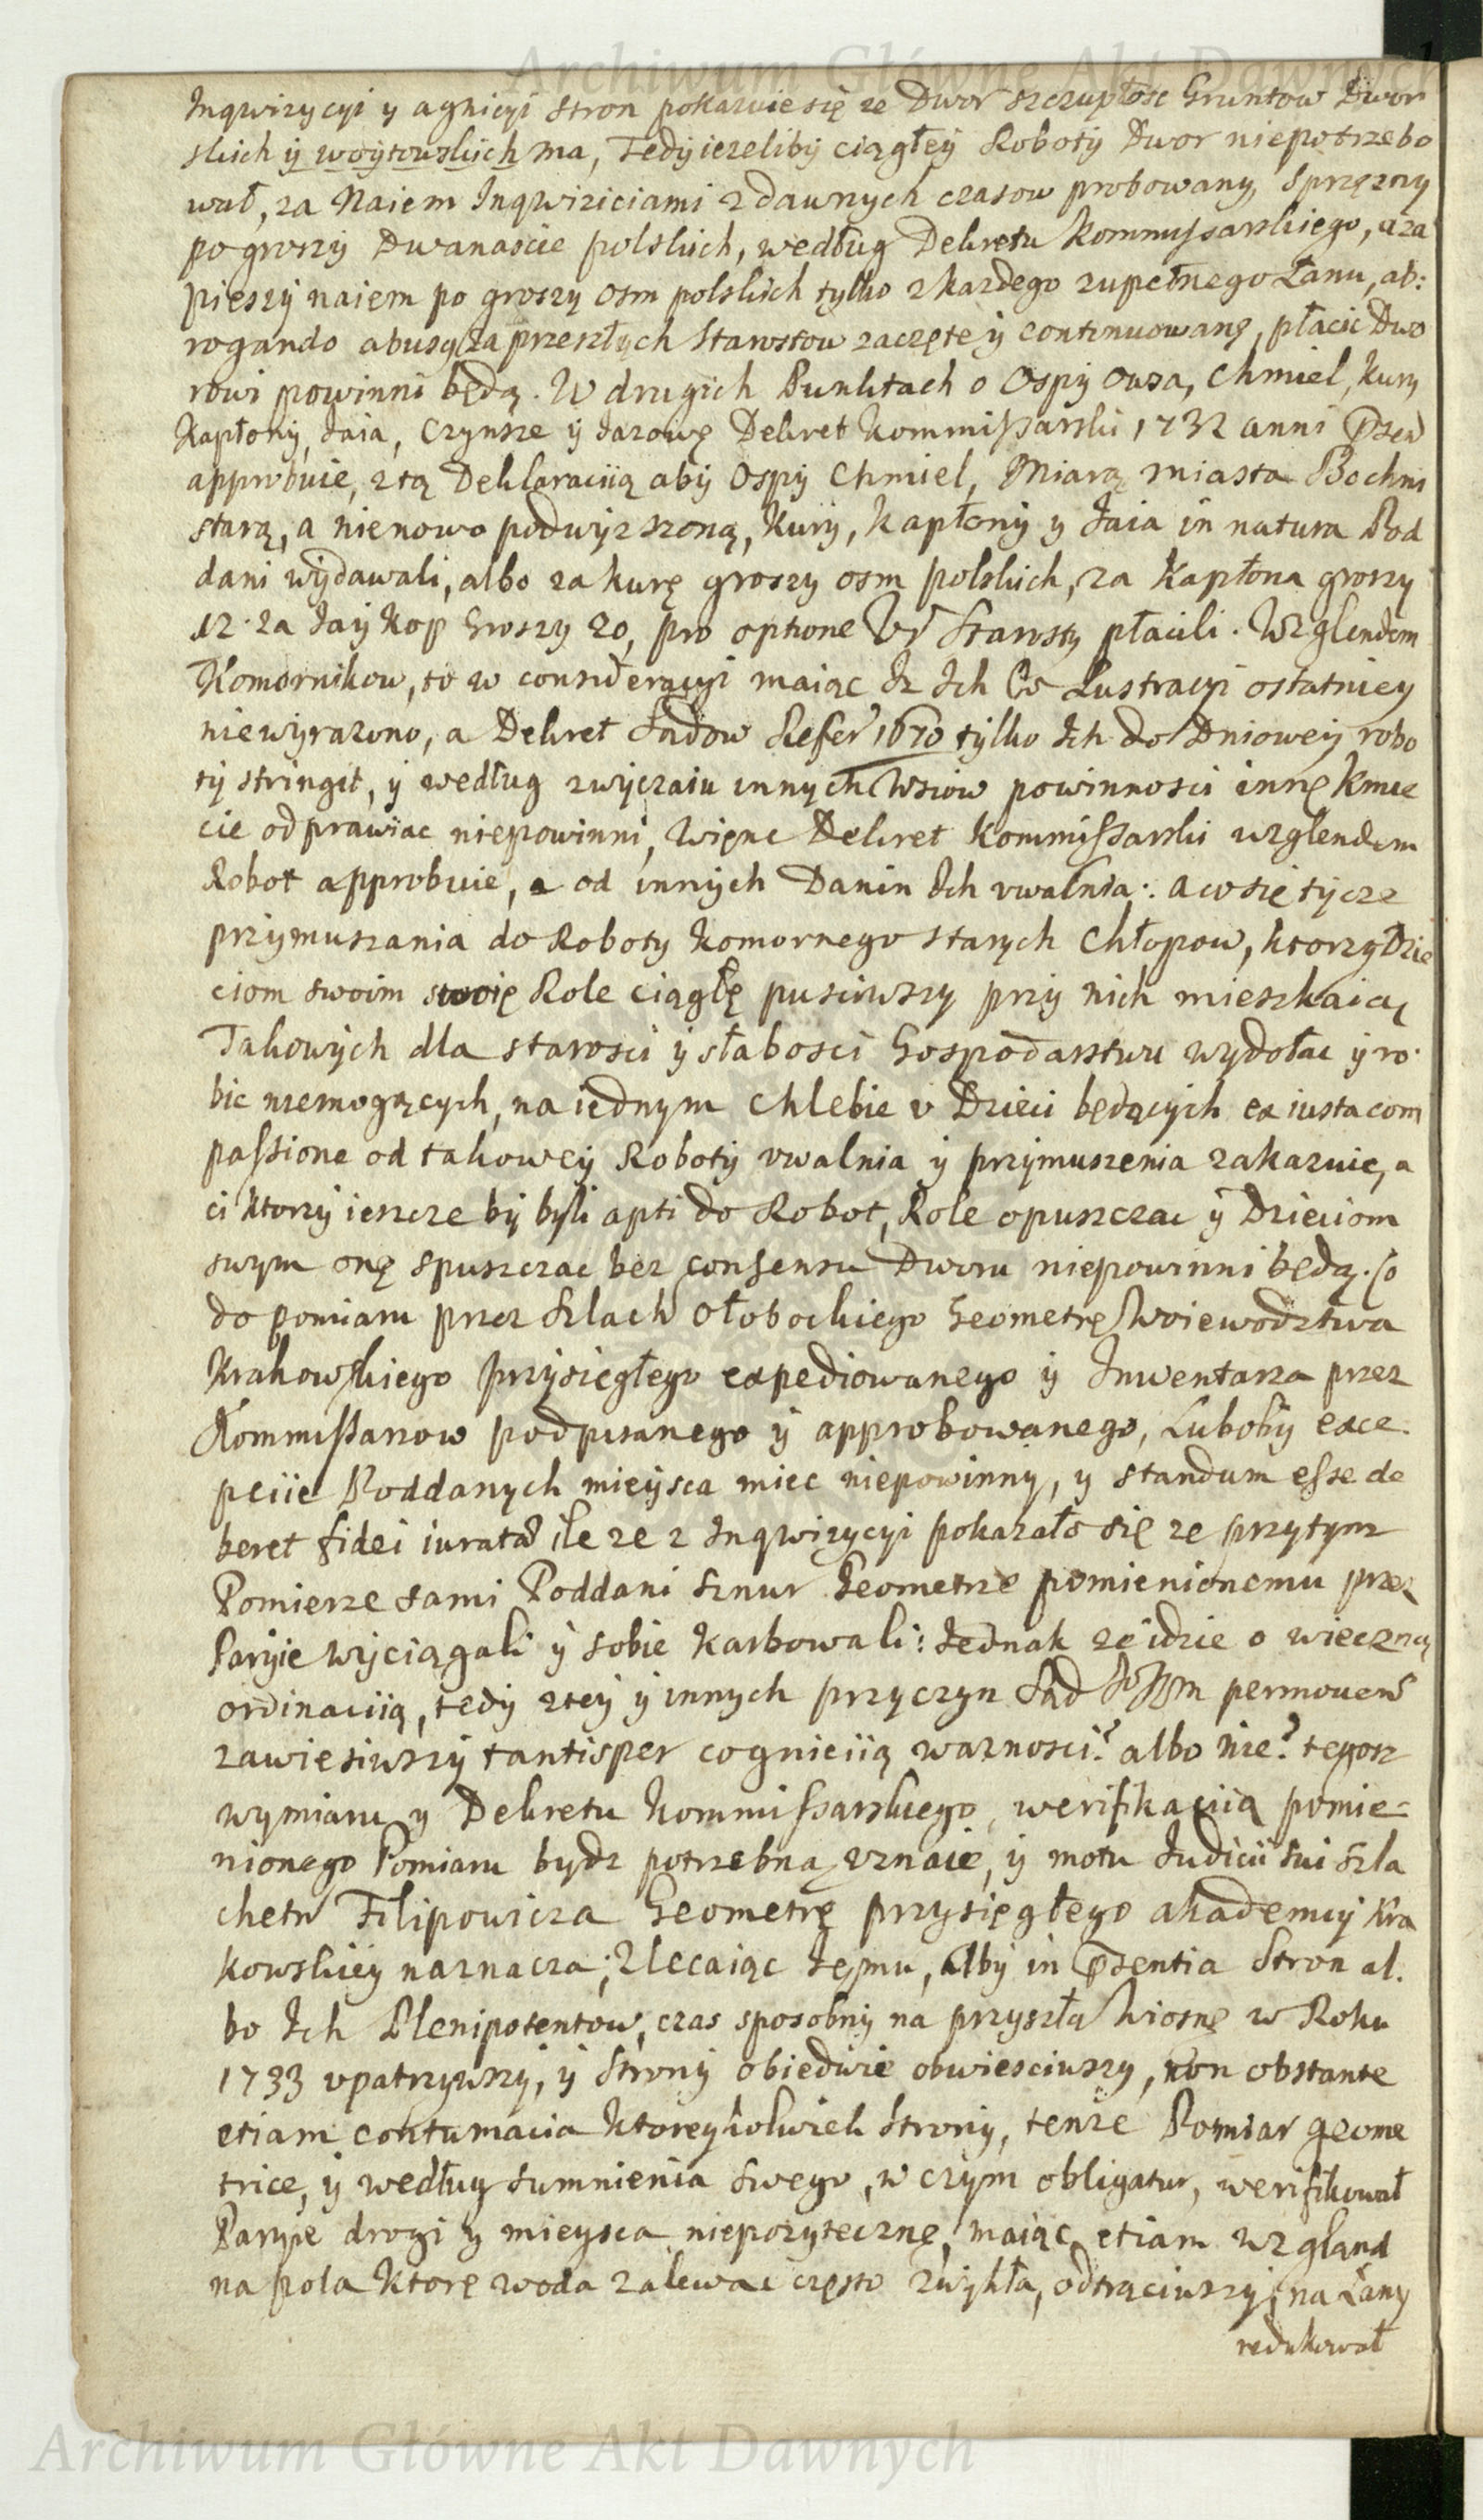 Archiwum Główne Akt Dawnych
Inqwizycyi y agnicyi stron pokazuie się ze Dwor szczupłosc Gruntow Dwor
skich ÿ woÿtowskich ma, Tedÿ iezelibÿ ciągłeÿ Robotÿ Dwor niepotrzebo
wał, za Naiem Inqwiziciami z dawnych czasow probowany, Sprzęzny
po groszÿ Dwanascie polskich, według Dekretu Kommyssarskiego, a za
pieszÿ naiem po groszy osm polskich tylko z kazdego zupełnego Łanu, ab:
rogando abusy za przeszłych Starostow zaczęte ÿ continuowanę, płacic Dwo
rowi powinni będą. W drugich Punktach o Ospÿ Owsa, Chmiel, kury
Kapłonÿ, Jaia, Czynsze ÿ Jazowę Dekret Kommissarski 1732 anni Psen
approbuie, z tą Deklaracÿią abÿ Ospÿ Chmiel, Miarą miasta Bochni
starą, a nienowo podwÿzszoną, kurÿ, kapłonÿ y Jaia in natura Pod
dani wÿdawali, albo za kurę groszy osm polskich, za Kapłona groszy
12. za Jaÿ kop Groszy 20, pro optione Ur Starosty płacili. Wzglendem
Komornikow, to w consideracyi maiąc Iz Ich w Lustracyi ostatniey
niewÿrazono, a Dekret Sadow Refer 1670 tylko Ich do Dnioweÿ robo
tÿ stringit, ÿ według zwÿczaiu innÿch Wsiow powinnosci innę kmie
cie odprawiac niepowinni, Więnc Dekret Kommissarski wzglendem
Robot approbuie, a od innÿch Danin Ich uwalnia: a co się tÿcze
przÿmuszania do Roboty komornego starych Chłopow, ktorzy Dzie
ciom swoim swoię Role ciągłę pusciwszy przÿ nich mieszkaią,
Takowÿch dla starosci ÿ słabosci Gospodarstwu wydołac ÿ ro.
bic niemogących, na iednym chlebie u Dzieci będącÿch ex iusta com
passione od takoweÿ Robotÿ uwalnia ÿ przÿmuszenia zakazuie, a
ci ktorzÿ ieszcze bÿ bÿli apti do Robot, Role opuszczac ÿ Dzieciom
swym onę spuszczac bez consensu Dworu niepowinni będą. Co
do pomiaru przez Szlach Ołobockiego Geometrę Woiewodztwa
Krakowskiego przÿsięgłego expediowanego ÿ Inwentarza przez
Kommissarzow podpisanego ÿ approbowanego, Lubobÿ exce.
pcÿie Poddanych mieÿsca miec niepowinnÿ, y standum esse de
beret fidei iurata ile ze z Inqwizycyi pokazało się ze przytym
Pomierze sami Poddani sznur Geometrze pomienionemu przez
Parÿie wÿciągali ÿ sobie karbowali: Jednak ze idzie o wieczną
ordinacÿią, tedÿ z teÿ ÿ innych przyczyn Sąd permovens
zawiesiwszÿ tantisper cognicÿią waznosci? albo nie? tegosz
wymiaru y Dekretu Kommissarskiego, werifikacÿią pomie-
nionego Pomiaru bydz potrzebną uznaie, ÿ motu Judicii sui Szla
chetn Filipowicza Geometrę przysięgłego akademiÿ kra
kowskieÿ naznacza; Zlecaiąc Iemu, abÿ in Psentia Stron al.
bo Ich Plenipotentow, czas sposobnÿ na przyszłą Wiosnę w Roku
1733 upatrzywszÿ, ÿ Stronÿ obiedwie obwiesciwszy, non obstante
etiam contumacia ktoreykolwiek Stronÿ, tenze Pomiar geome
trice, ÿ według sumnienia swego, w czym obligatur, werifikował
Paryie drogi y mieysca niepozyteczne, maiąc etiam wzgland
na pola ktore woda zalewac często zwÿkła, odtrąciwszÿ, na Łany
redukował
Archiwum Główne Akt Dawnych